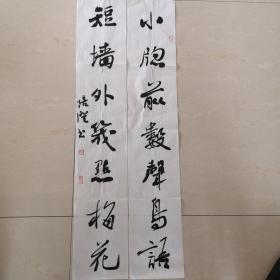 小窗前数聲鳥語
短墙外幾點梅花